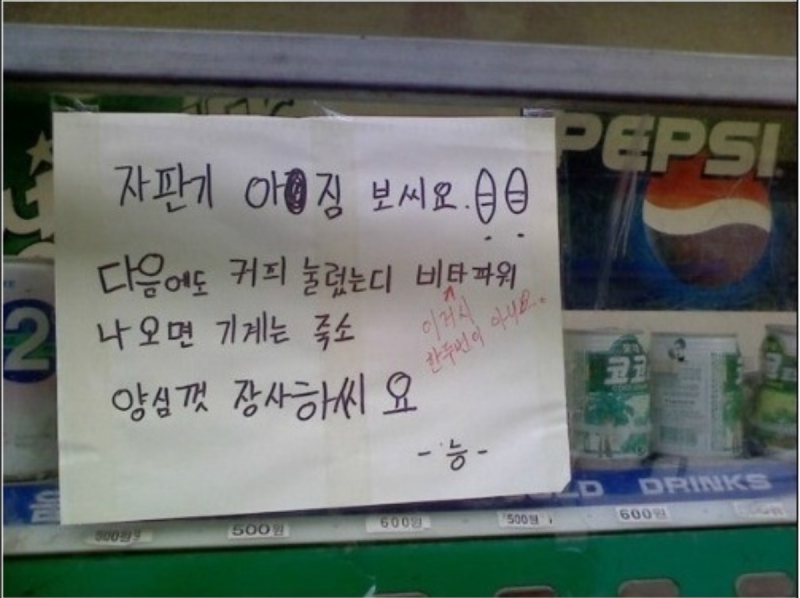 자판기 아징 보씨요.!!
다음에도 커피 눌렀는디 비타파워
나오면 기계는 죽소
이거시
한두번이 아니요。
양심껏 장사하씨요
-능-
PEPSI
2
코코
COLD DRINKS
300원
500원
600원
500원
600원